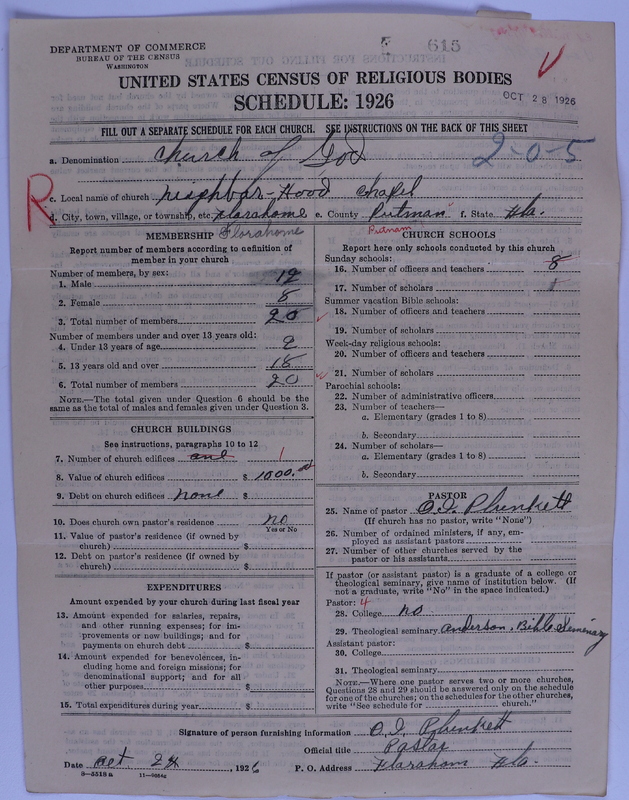 DEPARTMENT OF COMMERCE
BUREAU OF THE CENSUS
WASHINGTON
615
UNITED STATES CENSUS OF RELIGIOUS BODIES
SCHEDULE: 1926
OCT 28 1926
FILL OUT A SEPARATE SCHEDULE FOR EACH CHURCH. SEE INSTRUCTIONS ON THE BACK OF THIS SHEET
a. Denomination Church of God
2-0-5
R
c. Local name of church neighbar-Hood chapel
d. City, town, village, or township, etc. Florahome e. County Putman f. State Fla.
Florahome
Putnam
MEMBERSHIP
Report number of members according to definition of
member in your church
Number of members, by sex:
1. Male 12
2. Female 8
3. Total number of members 20
Number of members under and over 13 years old:
4. Under 13 years of age 2
5. 13 years old and over 18
6. Total number of members 20
NOTE.—The total given under Question 6 should be the
same as the total of males and females given under Question 3.
CHURCH BUILDINGS
See instructions, paragraphs 10 to 12
7. Number of church edifices one 1
8. Value of church edifices $ 1000.00
9. Debt on church edifices none $
10. Does church own pastor's residence no
Yes or No
11. Value of pastor's residence (if owned by
church) $
12. Debt on pastor's residence (if owned by
church) $
EXPENDITURES
Amount expended by your church during last fiscal year
13. Amount expended for salaries, repairs,
and other running expenses; for im-
provements or new buildings; and for
payments on church debt $
14. Amount expended for benevolences, in-
cluding home and foreign missions; for
denominational support; and for all
other purposes $
15. Total expenditures during year $
CHURCH SCHOOLS
Report here only schools conducted by this church
Sunday schools:
16. Number of officers and teachers 8
17. Number of scholars
Summer vacation Bible schools:
18. Number of officers and teachers
19. Number of scholars
Week-day religious schools:
20. Number of officers and teachers
21. Number of scholars
Parochial schools:
22. Number of administrative officers
23. Number of teachers—
a. Elementary (grades 1 to 8)
b. Secondary
24. Number of scholars—
a. Elementary (grades 1 to 8)
b. Secondary
PASTOR
25. Name of pastor O.I. Plunkett
(If church has no pastor, write "None")
26. Number of ordained ministers, if any, em-
ployed as assistant pastors
27. Number of other churches served by the
pastor or his assistants
If pastor (or assistant pastor) is a graduate of a college or
theological seminary, give name of institution below. (If
not a graduate, write "No" in the space indicated.)
Pastor: 4
28. College no
29. Theological seminary anderson. Bible Seminary
Assistant pastor:
30. College
31. Theological seminary
NOTE.—Where one pastor serves two or more churches,
Questions 28 and 29 should be answered only on the schedule
for one of the churches; on the schedules for the other churches,
write "See schedule for church."
Signature of person furnishing information O.I. Plunkett
Official title Pastor
Date oct 24 1926 P. O. Address Floraham Fla.
8-5518a 11-9054c